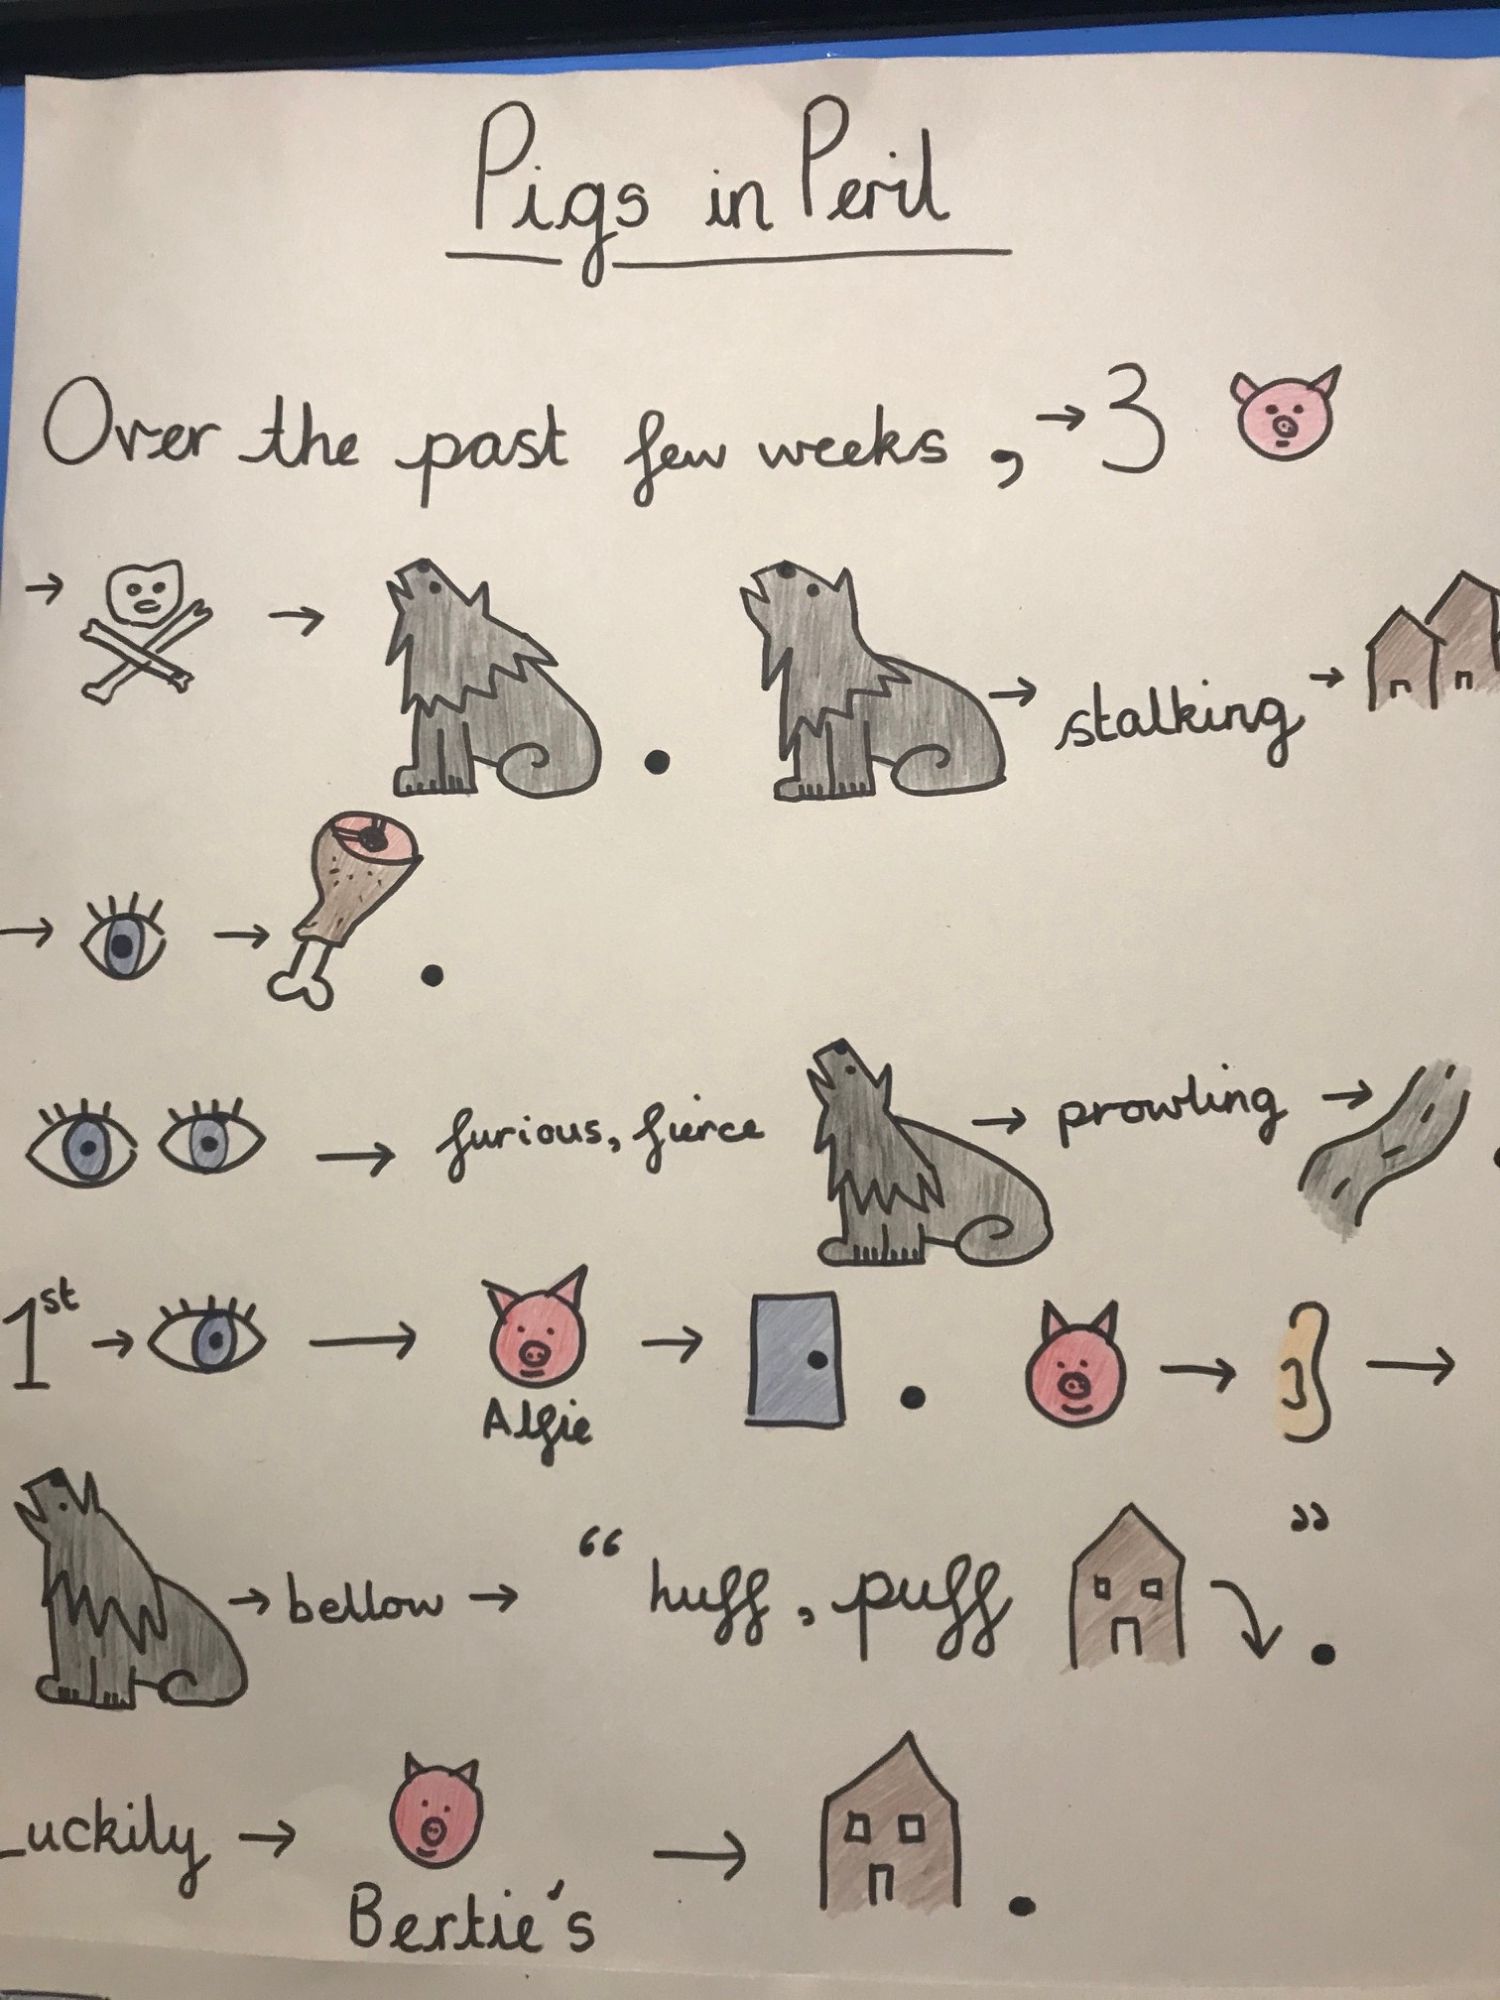 Pigs in Peril
Over the past few weeks, → 3
→ → . → stalking →
→ → .
→ furious, fierce → prowling → .
1st → → → . → →
Alfie
→ bellow → “ huff, puff ” .
Luckily → → .
Bertie's